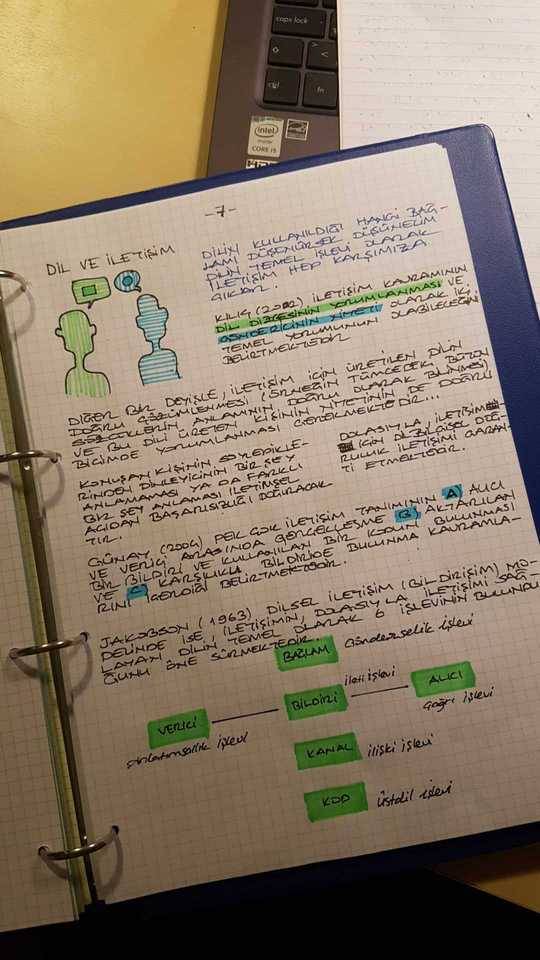 caps lock
ctrl
fn
intel
CORE i5
-7-
DİL VE İLETİŞİM
DİLİN KULLANILDIĞI HANGİ BAĞ-
LAMI DÜŞÜNÜRSEK DÜŞÜNELİM
DİLİN TEMEL İŞLEVİ OLARAK
İLETİŞİM HEP KARŞIMIZA
ÇIKAR.
KILIÇ (2002) İLETİŞİM KAVRAMININ
DİL DİZGESİNİN YORUMLANMASI VE
GÖNDERİCİNİN NİYETİ OLARAK İKİ
TEMEL YORUMUNUN OLABİLECEĞİNİ
BELİRTMEKTEDİR
DİĞER BİR DEYİŞLE, İLETİŞİM İÇİN ÜRETİLEN DİLİN
DOĞRU ÇÖZÜMLENMESİ (ÖRNEĞİN TÜMCEDEKİ BÜTÜN
SÖZCÜKLERİN ANLAMININ DOĞRU OLARAK BİLİNMESİ)
VE BU DİLİ ÜRETEN KİŞİNİN NİYETİNİN DE DOĞRU
BİÇİMDE YORUMLANMASI GEREKMEKTEDİR...
KONUŞAN KİŞİNİN SÖYLEDİKLE-
RİNDEN DİNLEYİCİNİN BİR ŞEY
ANLAMAMASI YA DA FARKLI
BİR ŞEY ANLAMASI İLETİMSEL
AÇIDAN BAŞARISIZLIĞI DOĞURACAK
TIR.
DOLAYISIYLA, İLETİŞİM
İÇİN DİLBİLGİSEL DOĞ-
RULUK İLETİŞİMİ GARAN-
Tİ ETMEKTEDİR.
GÜNAY, (2004) PEK ÇOK İLETİŞİM TANIMININ A) ALICI
VE VERİCİ ARASINDA GERÇEKLEŞME B) AKTARILAN
BİR BİLDİRİ VE KULLANILAN BİR KODUN BULUNMASI
VE C) KARŞILIKLI BİLDİRİDE BULUNMA KAVRAMLA-
RINI İÇERDİĞİ BELİRTMEKTEDİR.
JAKOBSON (1963) DİLSEL İLETİŞİM (BİLDİRİŞİM) MO-
DELİNDE İSE, İLETİŞİMİN, DOLAYISIYLA İLETİŞİMİ SAĞ-
LAYAN DİLİN TEMEL OLARAK 6 İŞLEVİNİN BULUNDU
ĞUNU ÖNE SÜRMEKTEDİR.
BAĞLAM Göndergesellik işlevi
ileti işlevi
VERİCİ BİLDİRİ ALICI
anlatımsallık işlevi
çağrı işlevi
KANAL ilişki işlevi
KOD üstdil işlevi